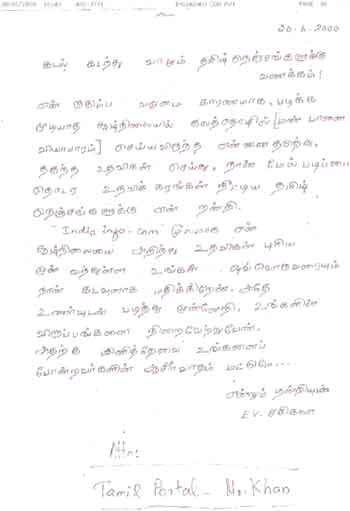 30.6.2000
கடல் கடந்து வாழும் தமிழ் நெஞ்சங்களுக்கு
வணக்கம்!
என் குடும்ப வறுமை காரணமாக, படிக்க
முடியாத சூழ்நிலையில் குலத்தொழில் [மண் பானை
வியாபாரம்] செய்யவிருந்த என்னை
தகுந்த உதவிகள் செய்து, நான் மேல் படிப்பை
தொடர உதவிக் கரங்கள் நீட்டிய தமிழ்
நெஞ்சங்களுக்கு என் நன்றி.
மூலமாக என்
சூழ்நிலையை அறிந்து உதவிகள் புரிய
முன் வந்துள்ள உங்கள் ஒவ்வொருவரையும்
நான் கடவுளாக மதிக்கிறேன். அதே
உணர்வுடன் படித்து முன்னேறி, உங்களின்
விருப்பங்களை நிறைவேற்றுவேன்.
அதற்கு உங்களைப்
போன்றவர்களின் ஆசீர்வாதம் மட்டுமே...
என்றும் நன்றியுடன்
E.V. சசிகலா
Attn:
Tamil Portal - Mr. Khan